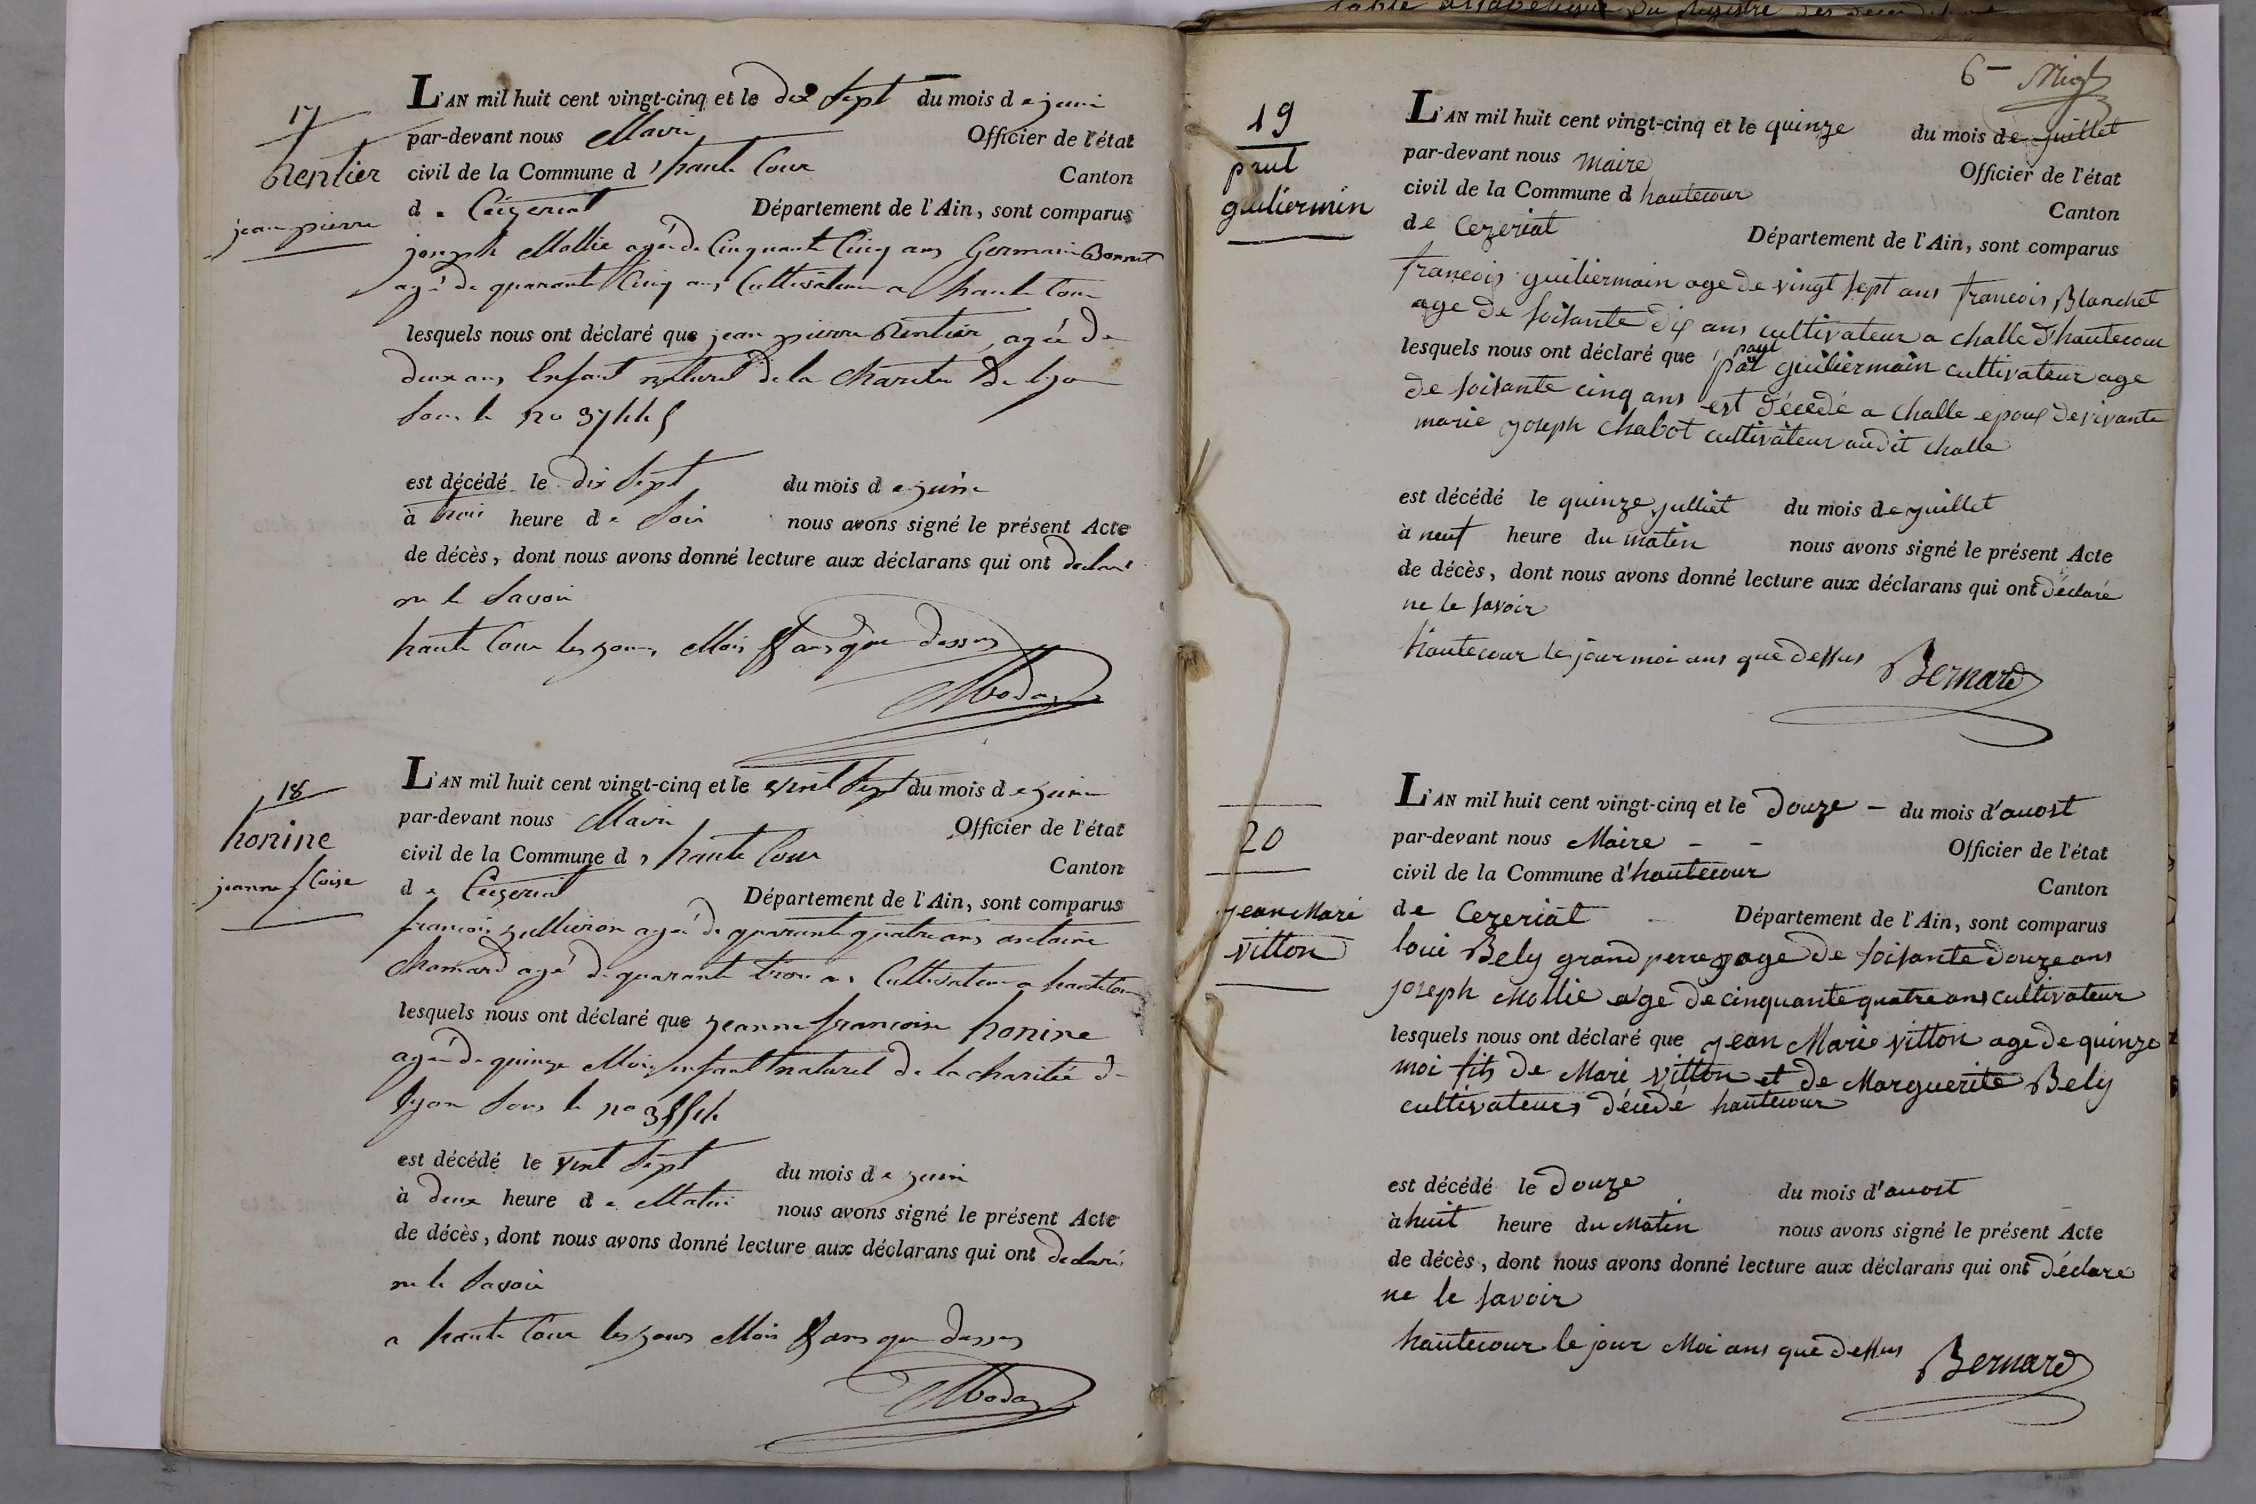 17
Rentier
jean pierre
L'AN mil huit cent vingt-cinq et le dix Sept du mois de juin
par-devant nous Maire Officier de l'état
civil de la Commune d haute Cour Canton
de Ceizeriat Département de l'Ain, sont comparus
joseph Mollie agé de Cinquante Cinq ans Germain Bonnet
agé de quarante Cinq ans Cultivateur a haute Cour
lesquels nous ont déclaré que jean pierre Rentier agée de
deux ans Enfant naturel de la charitée de lyon
Sous le no
est décédé le dix Sept du mois de juin
à trois heure de Soir nous avons signé le présent Acte
de décès, dont nous avons donné lecture aux déclarans qui ont declaré
ne le Savoir
haute Cour les jours Mois & ans que dessus
18
honine
jeanne fcoise
L'AN mil huit cent vingt-cinq et le vint Sept du mois de juin
par-devant nous Maire Officier de l'état
civil de la Commune d haute Cour Canton
de Ceizeriat Département de l'Ain, sont comparus
francois jullieron agé de quarante quatre ans antoine
Chamard agé de quarante trois ans Cultivateur a haute Cour
lesquels nous ont déclaré que jeanne francoise honine
agée de quinze Mois enfant naturel de la charitée de
lyon Sous le no
est décédé le vint Sept du mois de juin
à deux heure de Matin nous avons signé le présent Acte
de décès, dont nous avons donné lecture aux déclarans qui ont declaré
ne le Savoir
a haute Cour les jours Mois & ans que dessus
6
19
paul
guiliermin
L'AN mil huit cent vingt-cinq et le quinze du mois de juillet
par-devant nous maire Officier de l'état
civil de la Commune d hautecour Canton
de Cezeriat Département de l'Ain, sont comparus
francois guiliermain age de vingt sept ans francois Blanchet
age de soisante dix ans cultivateur a challe d'hautecour
lesquels nous ont déclaré que paul guiliermain cultivateur age
de soisante cinq ans est décedé a challe epoux de vivante
marie joseph chabot cultivateur audit challe
est décédé le quinze julliet du mois de juillet
à neuf heure du matin nous avons signé le présent Acte
de décès, dont nous avons donné lecture aux déclarans qui ont déclaré
ne le savoir
hautecour le jour moi ans que dessus
Bernard
20
jean Mari
vitton
L'AN mil huit cent vingt-cinq et le Douze – du mois d'auost
par-devant nous Maire – – Officier de l'état
civil de la Commune d'hautecour Canton
de Cezeriat Département de l'Ain, sont comparus
loui Bely grand perre age de soisante douze ans
joseph Mollie age de cinquante quatre ans cultivateur
lesquels nous ont déclaré que jean Marie vitton age de quinze
moi fils de Mari vitton et de Marguerite Bely
cultivateurs décedé hautecour
est décédé le Douze du mois d'auost
à huit heure du Matin nous avons signé le présent Acte
de décès, dont nous avons donné lecture aux déclarans qui ont déclare
ne le savoir
hautecour le jour Moi ans que dessus
Bernard